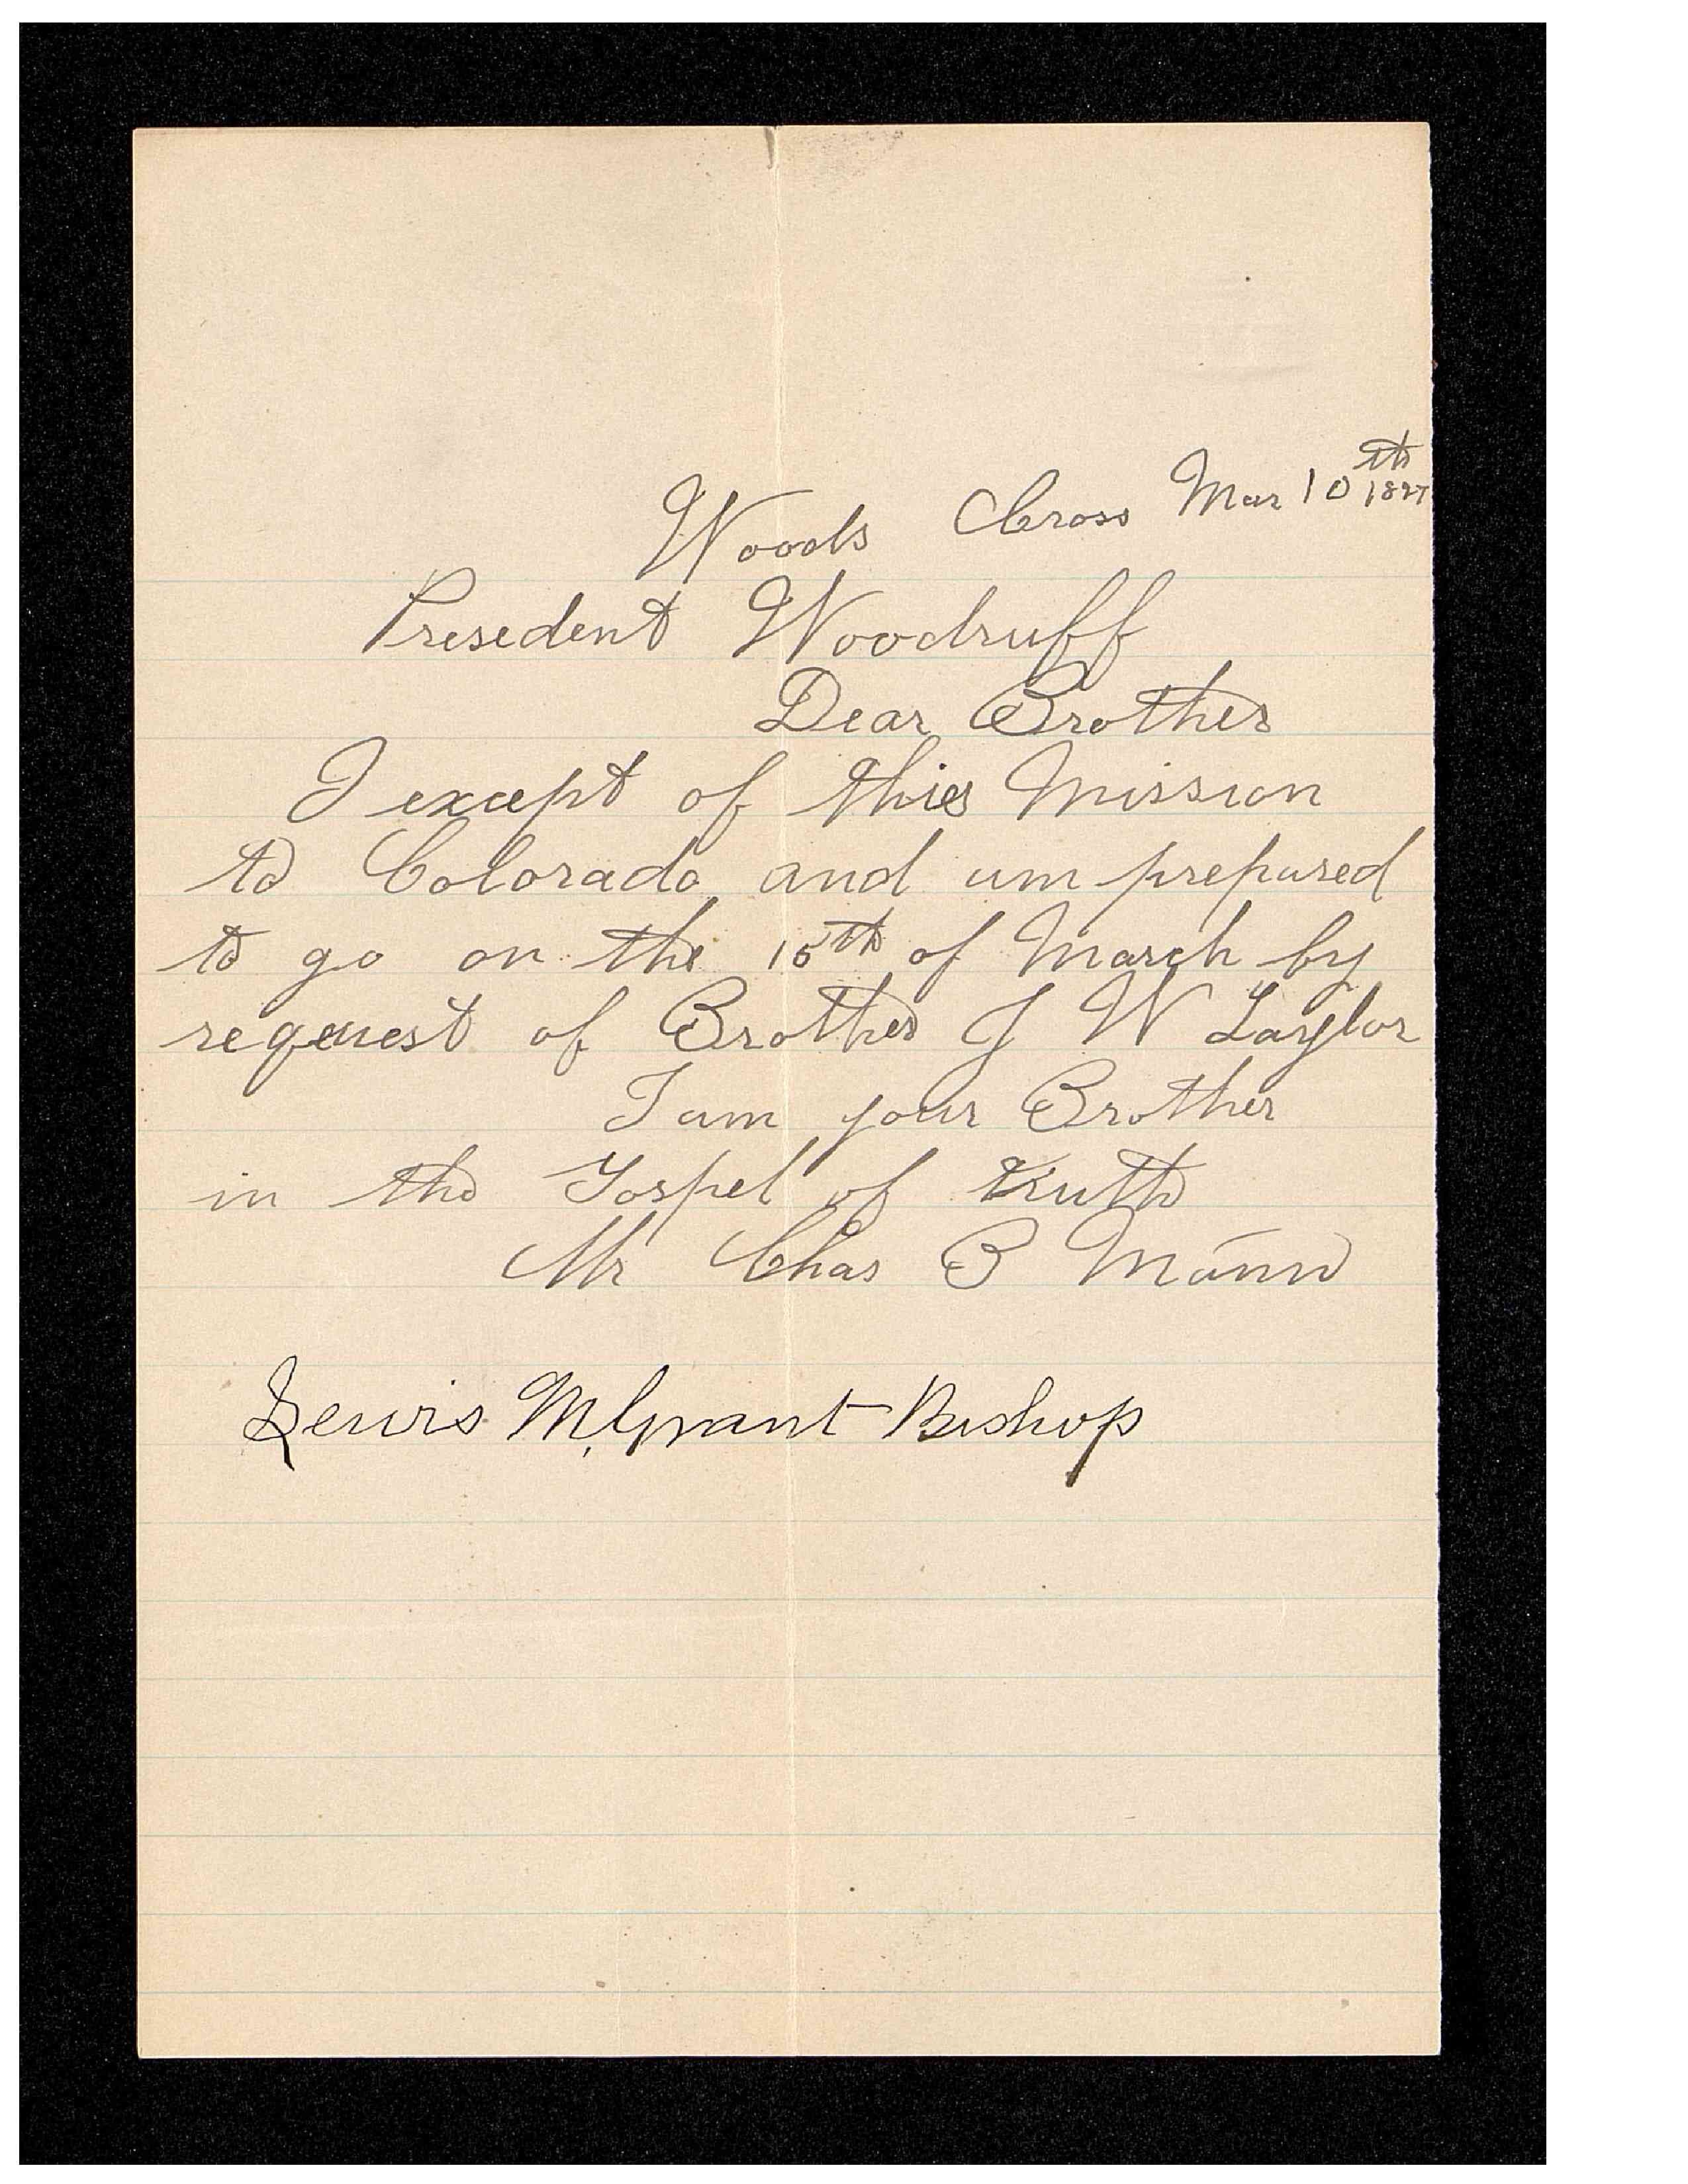 Woods Cross Mar 10th 1897
Presedent Woodruff
Dear Brother
I except of this Mission
to Colorado and am prepared
to go on the 15th of March by
request of Brother J W Taylor
I am your Brother
in the Gospel of truth
Mr Chas B Mann
Lewis M. Grant Bishop